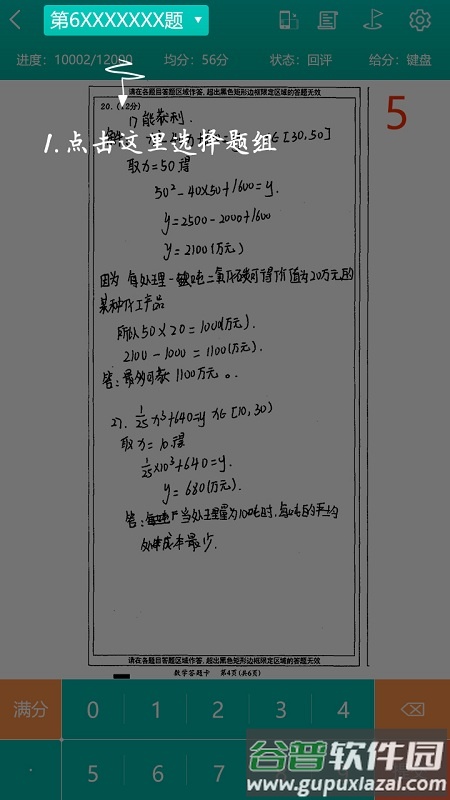 第6XXXXXXX题
进度：10002/12000 均分：56分 状态：回评 给分：键盘
请在各题目答题区域作答，超出黑色矩形边框限定区域的答题无效
20.(12分)
5
能获利.
1.点击这里选择题组
∈[30,50]
取x=50得
50²-40×50+1600=y.
y=2500-2000+1600
y=2100(万元)
因为 每处理一吨二氧化碳可得价值为20万元的
某种化工产品
所以50×20=1000(万元).
2100-1000=1100(万元).
答:最多可获1100万元。
27. 1/25 x³+640=y x∈[10,30)
取x=10得
1/25×10³+640=y.
y=680(万元).
答: 当处理量为100吨时,每吨的平均
处理成本最少.
请在各题目答题区域作答，超出黑色矩形边框限定区域的答题无效
数学答题卡 第4页(共6页)
满分 0 1 2 3 4
. 5 6 7
谷普软件园
www.gupuxlazal.com